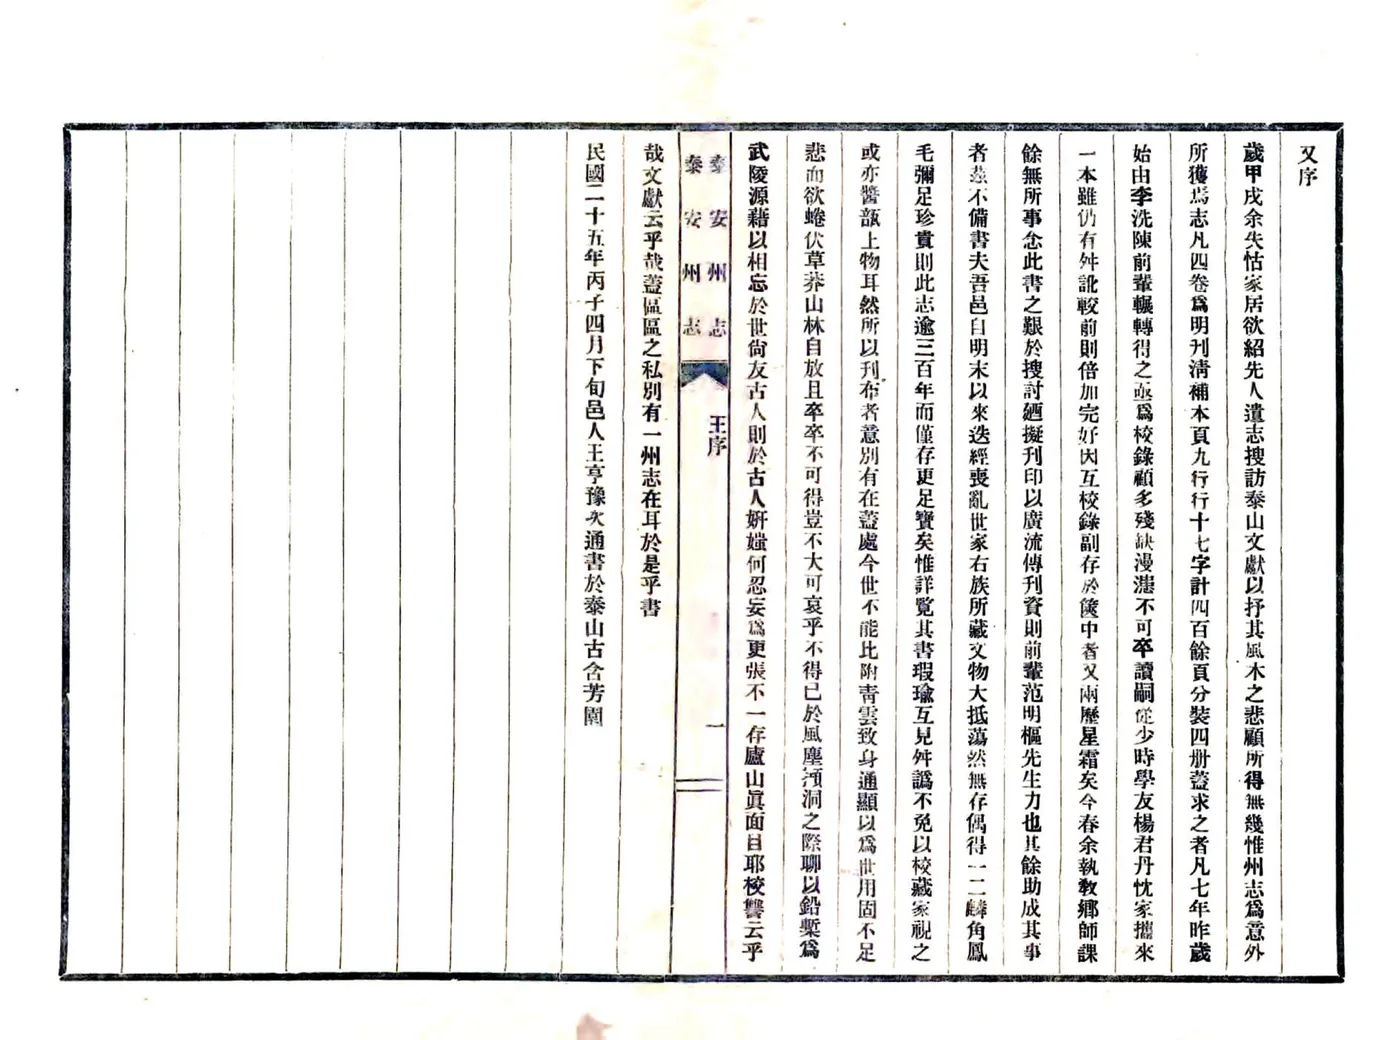 又序
歲甲戌余失怙家居欲紹先人遺志搜訪泰山文獻以抒其風木之悲顧所得無幾惟州志爲意外
所獲焉志凡四卷爲明刊淸補本頁九行行十七字計四百餘頁分裝四册蓋求之者凡七年昨歲
始由李洗陳前輩輾轉得之亟爲校錄顧多殘缺漫漶不可卒讀嗣從少時學友楊君丹忱家攜來
一本雖仍有舛訛較前則倍加完好因互校錄副存於篋中者又兩歷星霜矣今春余執敎鄉師課
餘無所事念此書之艱於搜討廼擬刊印以廣流傳刊資則前輩范明樞先生力也其餘助成其事
者茲不備書夫吾邑自明末以來迭經喪亂世家右族所藏文物大抵蕩然無存偶得一二麟角鳳
毛彌足珍貴則此志逾三百年而僅存更足寶矣惟詳覽其書瑕瑜互見舛譌不免以校藏家視之
或亦醬瓿上物耳然所以刊布者意別有在蓋處今世不能比附靑雲致身通顯以爲世用固不足
悲而欲蜷伏草莽山林自放且卒卒不可得豈不大可哀乎不得已於風塵澒洞之際聊以鉛槧爲
武陵源藉以相忘於世尙友古人則於古人姸媸何忍妄爲更張不一存廬山眞面目耶校讐云乎
泰安州志
王序
一
泰安州志
哉文獻云乎哉蓋區區之私別有一州志在耳於是乎書
民國二十五年丙子四月下旬邑人王亨豫次通書於泰山古含芳園